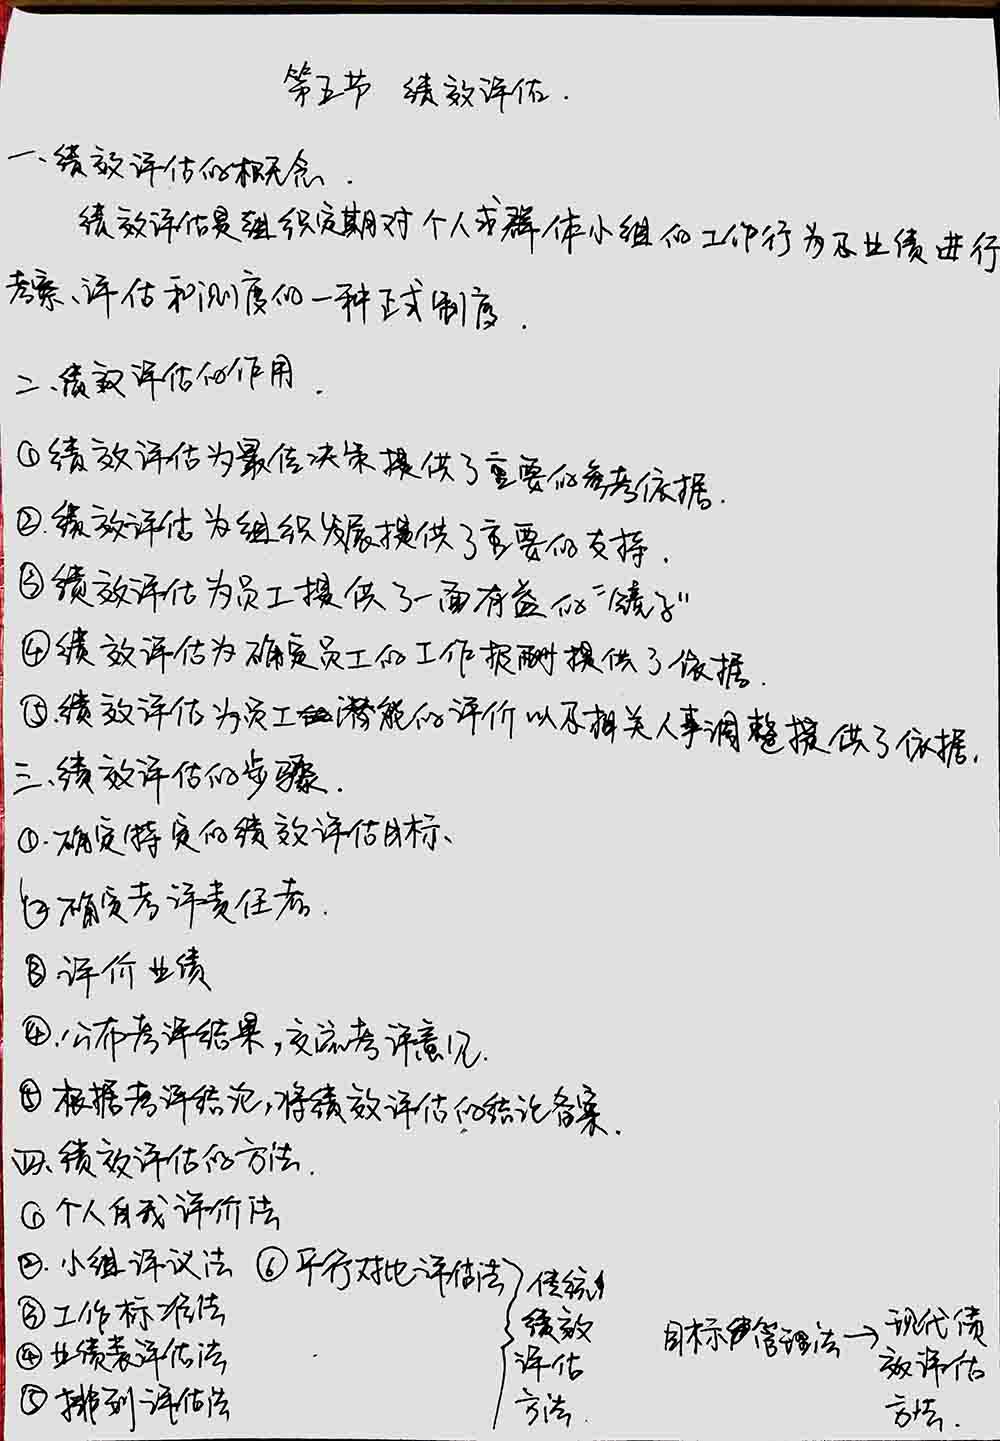 第五节 绩效评估.
一、绩效评估的概念.
绩效评估是组织定期对个人或群体小组的工作行为及业绩进行
考察、评估和测度的一种正式制度.
二、绩效评估的作用.
①绩效评估为最佳决策提供了重要的参考依据.
②.绩效评估为组织发展提供了重要的支持.
③绩效评估为员工提供了一面有益的“镜子”
④绩效评估为确定员工的工作报酬提供了依据.
⑤.绩效评估为员工潜能的评价以及相关人事调整提供了依据.
三、绩效评估的步骤.
①.确定特定的绩效评估目标、
②确定考评责任者.
③.评价业绩
④.公布考评结果,交流考评意见.
⑤根据考评结论,将绩效评估的结论备案.
四、绩效评估的方法.
①个人自我评价法
②.小组评议法 ⑥平行对比评估法
③工作标准法
④业绩表评估法
⑤排列评估法
传统
绩效
评估
方法.
目标管理法→现代绩
效评估
方法.